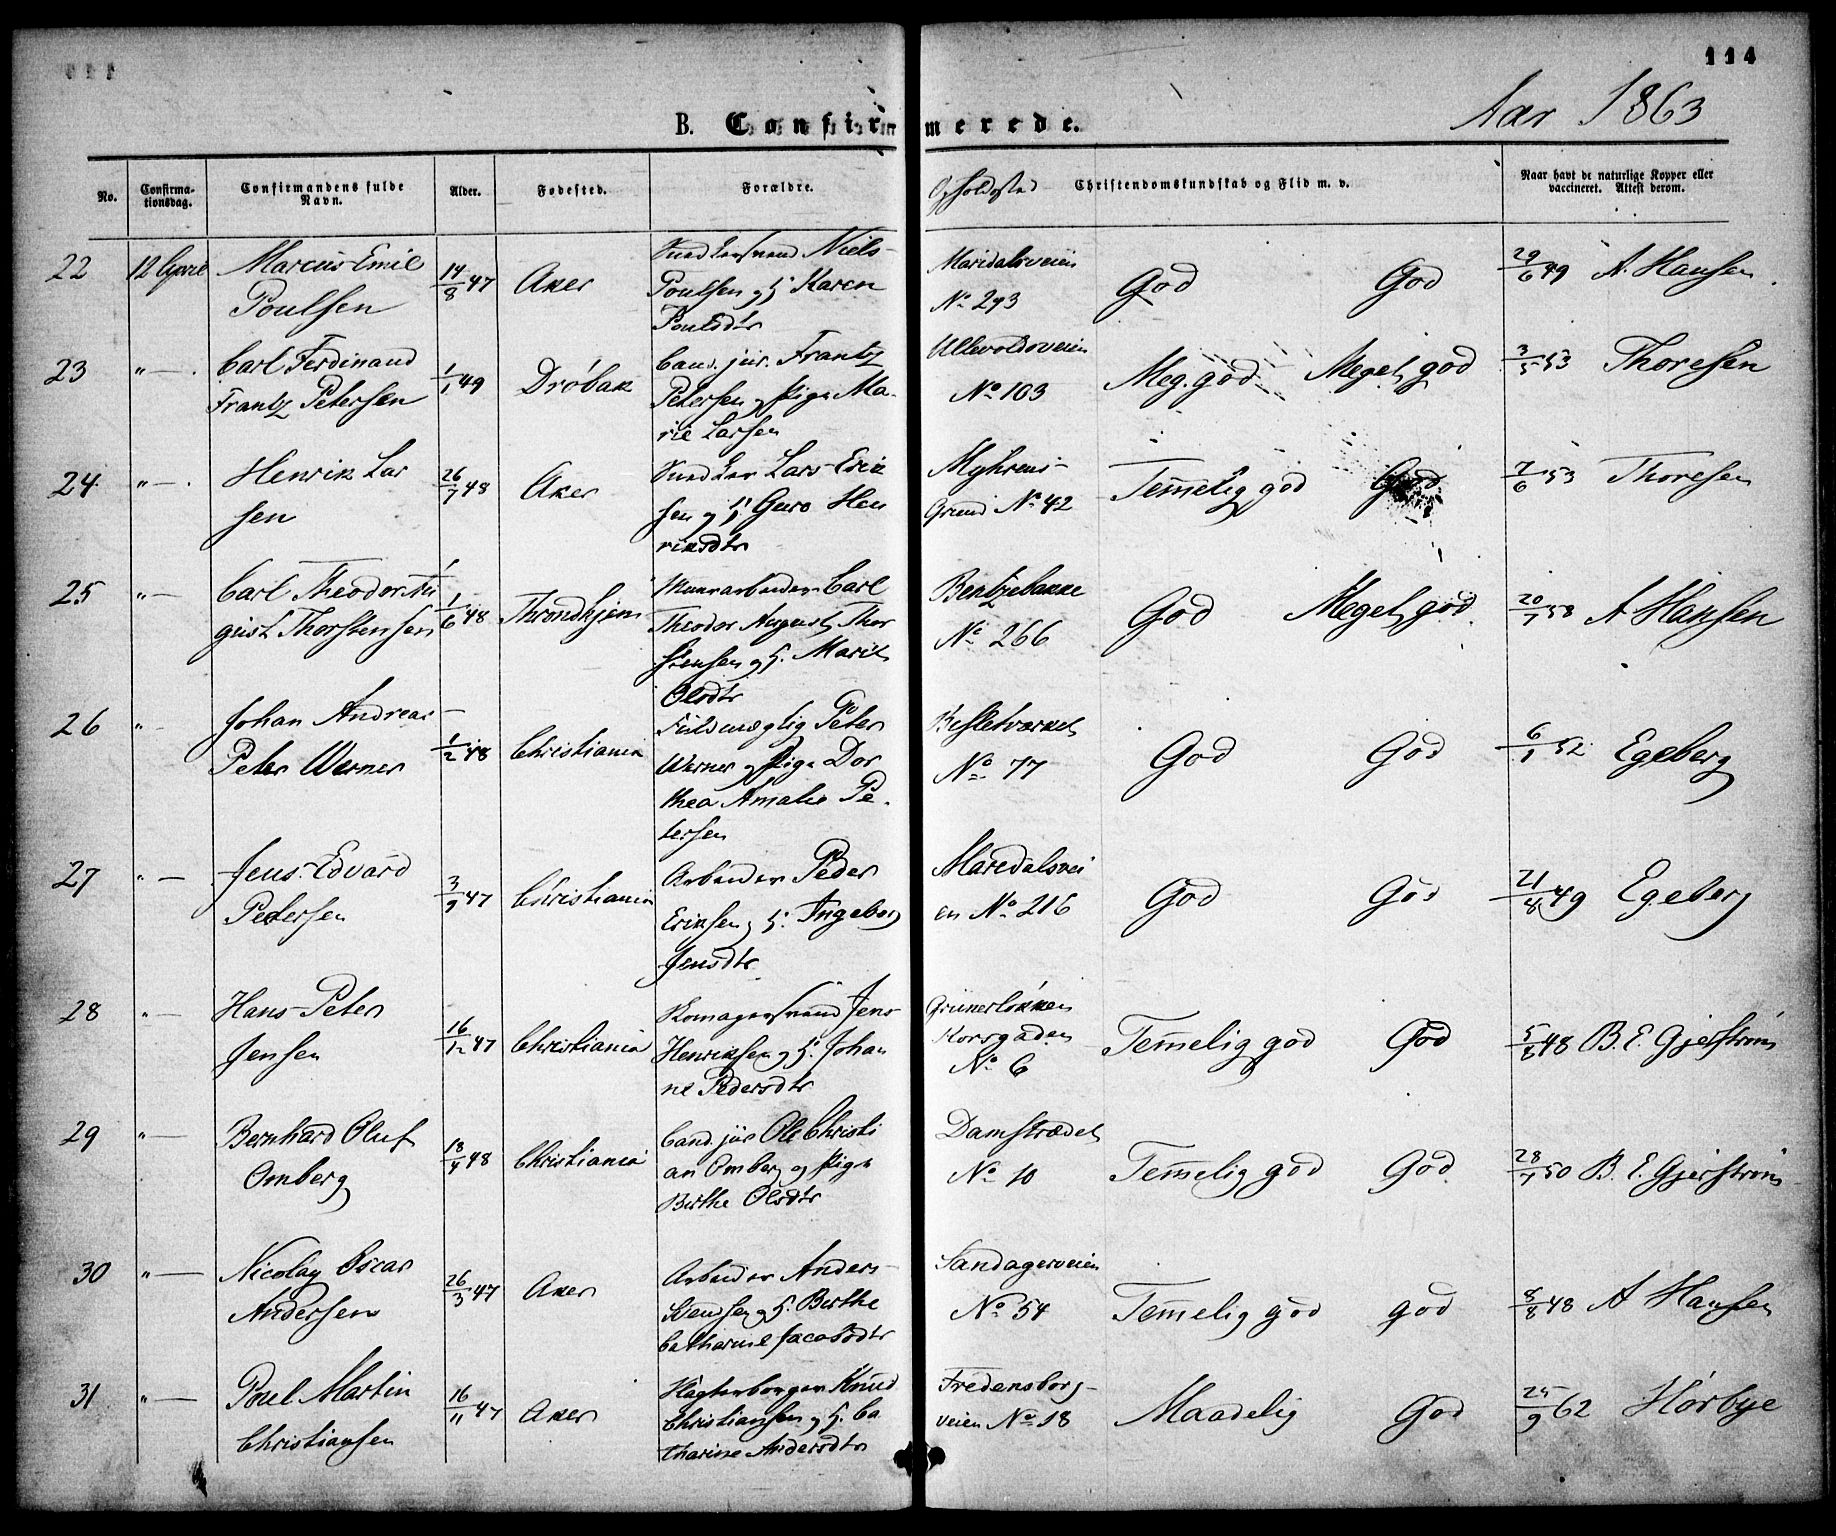 114
Aar 1863
B. Confirmerede.
No.
Confirma-
tionsdag.
Confirmandens fulde
Navn.
Alder.
Fødested.
Forældre.
Opholdssted
Christendomskundskab og Flid m. v.
Naar havt de naturlige Kopper eller
vaccineret. Attest derom.
22 12 April Marcus Emil
Poulsen
14/8 47 Aker
Niels
Poulsen og H. Karen
Poulsdtr
Maridalsveien
No 293
God God 29/6 49 A. Hansen
23 " — Carl Ferdinand
Frantz Petersen
1/1 49 Drøbak
Cand. jur. Frantz
Petersen og Pige Ma-
rie Larsen
Ullevoldsveien
No 103
Meg. god Meget god 3/5 53 Thoresen
24 " — Henrik Lar
sen
26/7 48 Aker
Lars Erik
sen og H. Guro Hen
riksdtr
Myhrens-
Grund No 42
Temmelig god God 7/6 53 Thoresen
25 " — Carl Theodor Au
gust Thorstensen
1/6 48 Throndhjem
Murarbeider Carl
Theodor August Thor
stensen og H. Marit
Olsdtr
Bentzebakke
No 266
God Meget god 20/7 58 A Hansen
26 " Johan Andreas
Peter Werner
1/2 48 Christiania
Fuldmægtig Peter
Werner og Pige Dor
thea Amalie Pe-
tersen
No 77
God God 6/1 52 Egeberg
27 " — Jens Edvard
Pedersen
3/9 47 Christiania
Arbeider Peder
Eriksen og H. Ingeborg
Jensdtr
Maredalsvei
en No 216
God God 21/8 49 Egeberg
28 " — Hans Peter
Jensen
16/12 47 Christiania
Jens
Henriksen og H. Johan
ne Pedersdtr
Grünerløkken
Korsgaden
No 6
Temmelig god God 5/8 48 B. E. Gjerstrøm
29 " — Bernhard Oluf
Omberg
18/4 48 Christiania
Cand. jur Ole Christi
an Omberg og Pige
Berthe Olsdtr
Damstrædet
No 10
Temmelig god God 28/7 50 B. E. Gjerstrøm
30 " — Nicolay Oscar
Andersen
26/3 47 Aker
Arbeider Anders
Svendsen og H. Berthe
Catharine Jacobsdtr
Sandagerveien
No 54
Temmelig god god 8/8 48 A Hansen
31 " — Poul Martin
Christiansen
16/11 47 Aker
Knud
Christiansen og H. Ca
tharine Andersdtr
Fredensborg-
veien No 18
Maadelig God 25/9 62 Hørbye